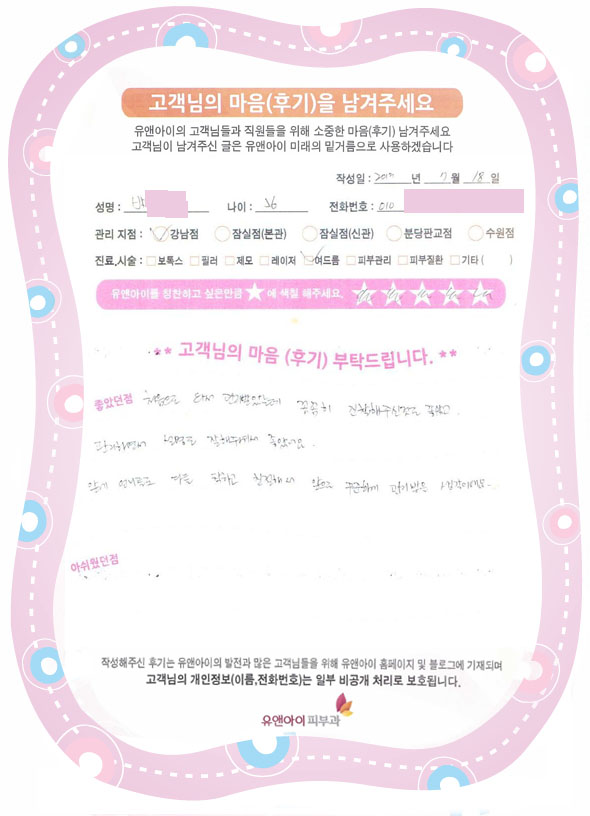 고객님의 마음(후기)을 남겨주세요
유앤아이의 고객님들과 직원들을 위해 소중한 마음(후기) 남겨주세요
고객님이 남겨주신 글은 유앤아이 미래의 밑거름으로 사용하겠습니다
작성일 : 2017 년 7 월 18 일
성명 : 박 나이 : 26 전화번호 : 010
관리 지점 : 강남점 잠실점(본관) 잠실점(신관) 분당판교점 수원점
진료,시술 : 보톡스 필러 제모 레이저 여드름 피부관리 피부질환 기타 ( )
유앤아이를 칭찬하고 싶은만큼 ★에 색칠 해주세요. ☆☆☆☆☆
** 고객님의 마음 (후기) 부탁드립니다. **
좋았던점 처음으로 와서 관리받았는데 꼼꼼히 진찰해주신것도 좋았고,
관리하면서 설명도 잘해주셔서 좋았어요.
다들 친절해서 앞으로 꾸준하게 관리받을 생각이에요~
아쉬웠던점
작성해주신 후기는 유앤아이의 발전과 많은 고객님들을 위해 유앤아이 홈페이지 및 블로그에 기재되며
고객님의 개인정보(이름,전화번호)는 일부 비공개 처리로 보호됩니다.
유앤아이피부과